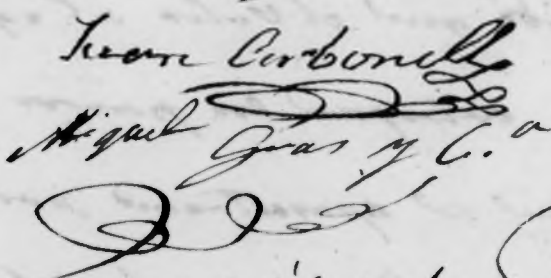 Juan Carbonell
Miguel Guas y C.ª